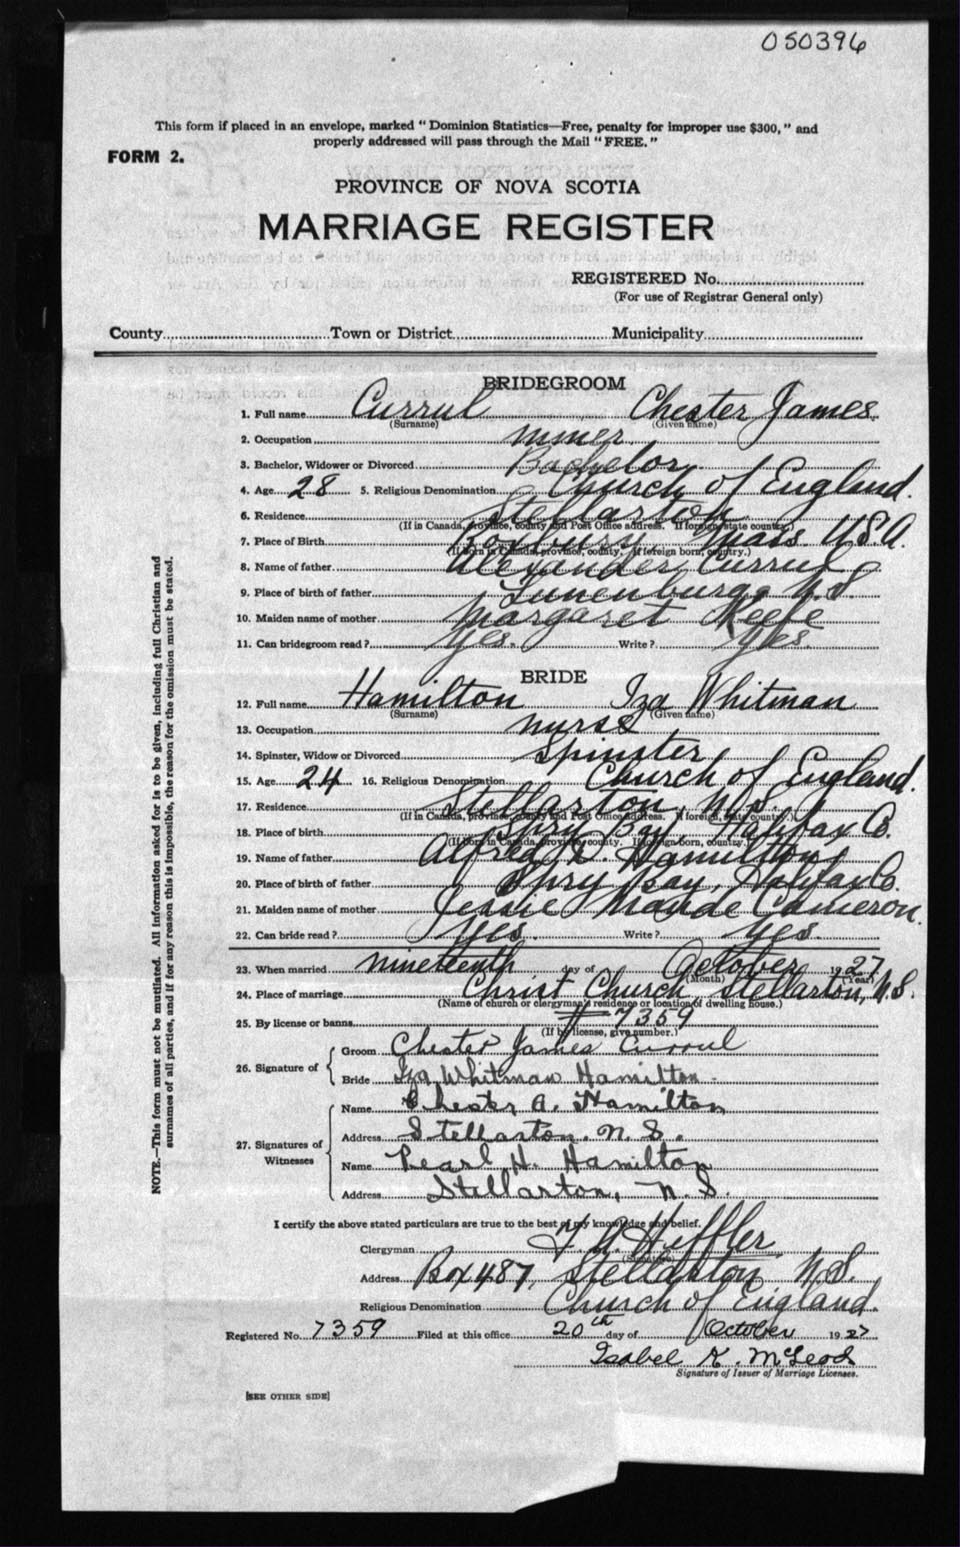 050396
This form if placed in an envelope, marked "Dominion Statistics—Free, penalty for improper use $300," and
properly addressed will pass through the Mail "FREE."
FORM 2.
PROVINCE OF NOVA SCOTIA
MARRIAGE REGISTER
REGISTERED No.
(For use of Registrar General only)
County Town or District Municipality
BRIDEGROOM
1. Full name Currul Chester James
(Surname) (Given name)
2. Occupation miner
3. Bachelor, Widower or Divorced Bachelor
4. Age 28 5. Religious Denomination Church of England.
6. Residence Stellarton
(If in Canada, province, county and Post Office address. If foreign state country.)
7. Place of Birth Roxbury Mass. U.S.A.
(If born in Canada, province, county. If foreign born, country.)
8. Name of father Alexander Currul
9. Place of birth of father Lunenburg, N.S.
10. Maiden name of mother Margaret Keefe
11. Can bridegroom read? Yes. Write? Yes.
BRIDE
12. Full name Hamilton Iza Whitman
(Surname) (Given name)
13. Occupation nurse
14. Spinster, Widow or Divorced Spinster
15. Age 24 16. Religious Denomination Church of England.
17. Residence Stellarton, N.S.
(If in Canada, province, county and Post Office address. If foreign, state country.)
18. Place of birth Spry Bay, Halifax Co.
(If born in Canada, province, county. If foreign born, country.)
19. Name of father Alfred Hamilton
20. Place of birth of father Spry Bay, Halifax Co.
21. Maiden name of mother Jessie Maude Cameron.
22. Can bride read? Yes. Write? Yes.
23. When married nineteenth day of October 1927
(Month) (Year)
24. Place of marriage Christ Church, Stellarton, N.S.
(Name of church or clergyman's residence or location of dwelling house.)
25. By license or banns # 7359
(If by license, give number.)
26. Signature of Groom Chester James Currul
Bride Iza Whitman Hamilton.
27. Signatures of Witnesses Name Chester A. Hamilton
Address Stellarton. N.S.
Name Pearl H. Hamilton
Address Stellarton, N.S.
I certify the above stated particulars are true to the best of my knowledge and belief.
Clergyman Heffler
(Signature)
Address Box 487, Stellarton N.S.
Religious Denomination Church of England.
Registered No. 7359 Filed at this office 20th day of October 1927
Isabel K. McLeod
Signature of Issuer of Marriage Licenses.
[SEE OTHER SIDE]
NOTE.—This form must not be mutilated. All information asked for is to be given, including full Christian and
surnames of all parties, and if for any reason this is impossible, the reason for the omission must be stated.